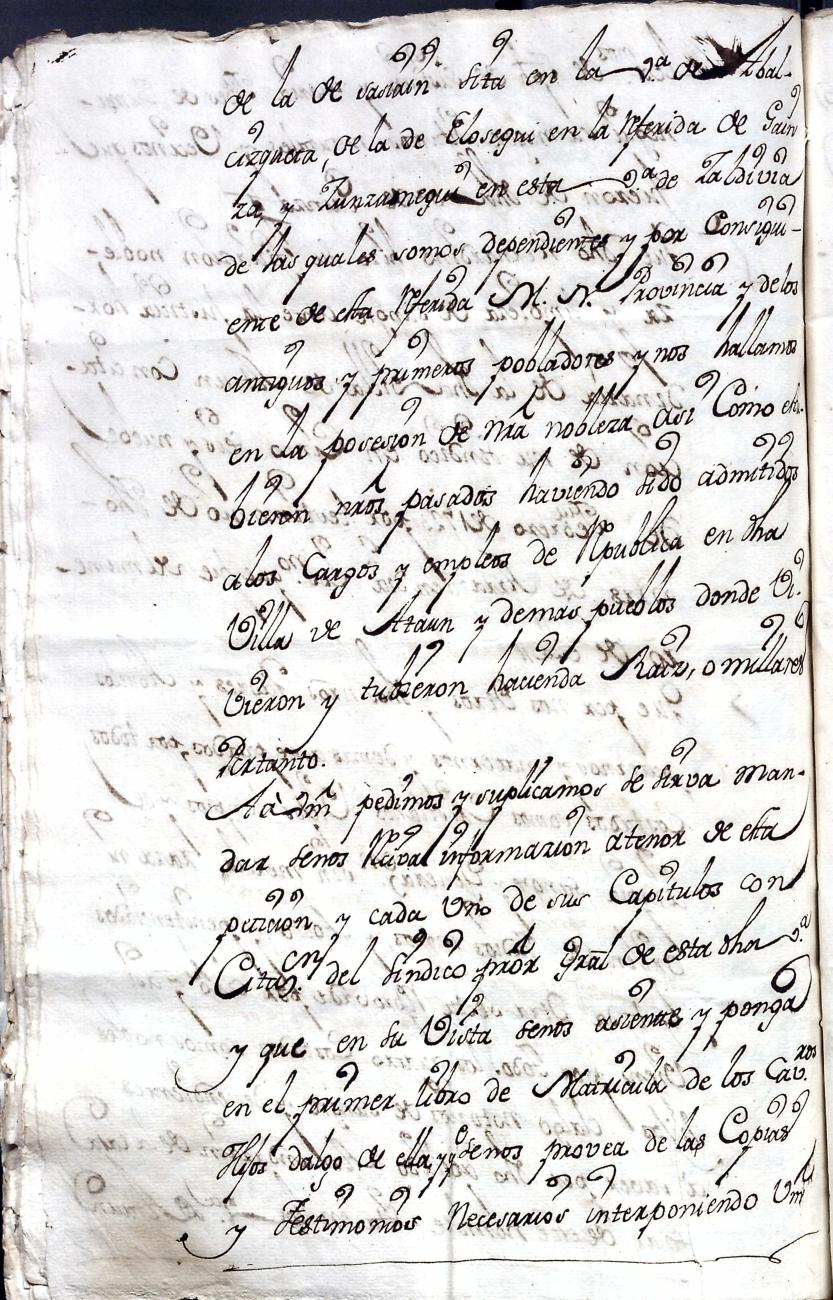 de la de sasiain sita en la v.a de Abal-
cizqueta, de la de Elosegui en la Referida de Gain
za, y Zunzunegui en esta v.a de Zaldivia
de las quales somos dependientes y por Consigui-
ente de esta Referida M. N. Provincia y delos
antiguos y primeros pobladores y nos hallamos
en la posesion de nrâ nobleza asi Como estu-
bieron nrôs pasados haviendo sido admitidos
alos Cargos y empleos de Republica en dha
Villa de Ataun y demas pueblos donde Vi-
vieron y tubieron hacienda Raiz, o millares
Portanto.
A Vm pedimos y suplicamos se sirva man-
dar senos Reciva informazion atenor de esta
petizion y cada Uno de sus Capitulos con
Citaz.on del sindico prôr Grâl de esta dha v.a
y que en su Vista senos asiente y ponga
en el primer libro de Matricula de los Cav.ros
Hijos dalgo de ella, y q.e senos provea de las Copias
y Testimonios Necesarios interponiendo Vm